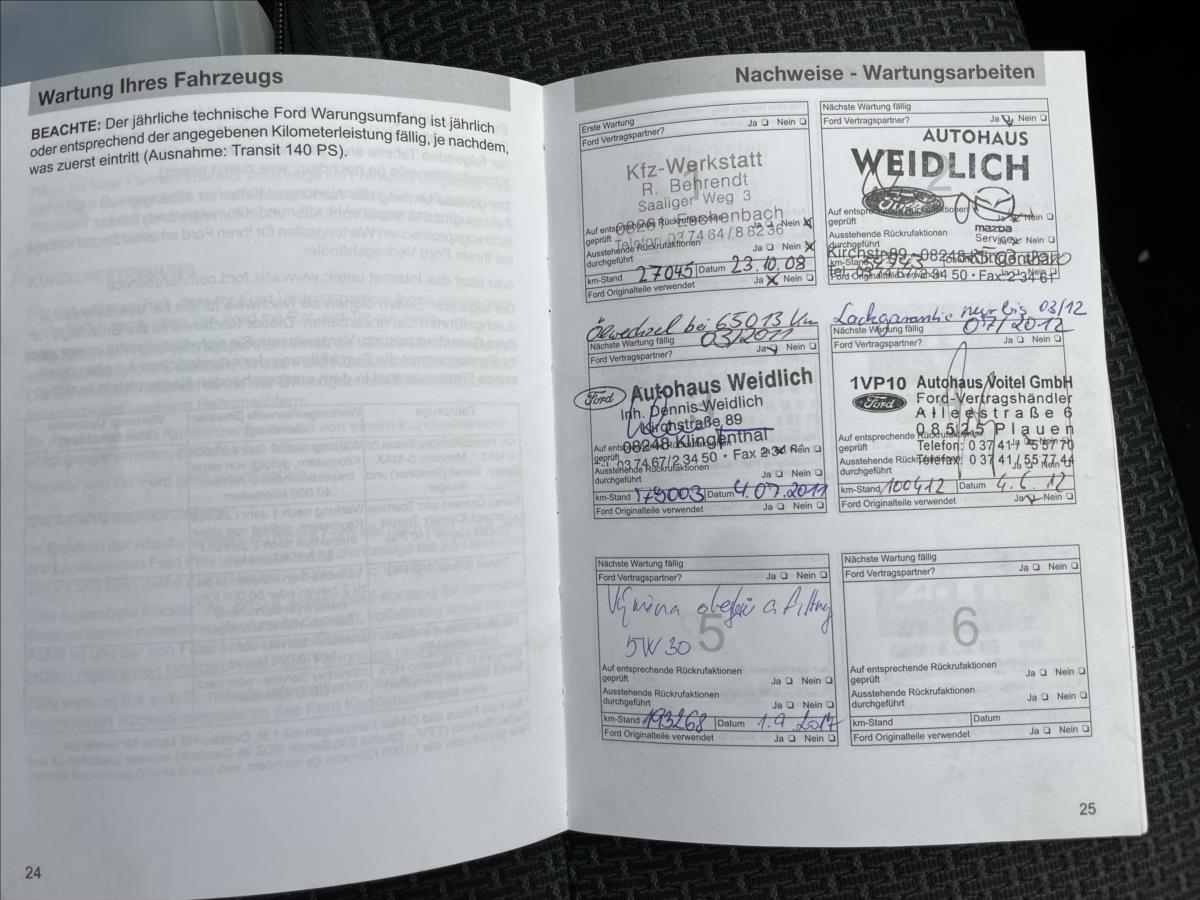 Wartung Ihres Fahrzeugs
BEACHTE: Der jährliche technische Ford Warungsumfang ist jährlich
oder entsprechend der angegebenen Kilometerleistung fällig, je nachdem,
was zuerst eintritt (Ausnahme: Transit 140 PS).
24
Nachweise - Wartungsarbeiten
Erste Wartung
Ford Vertragspartner? Ja Nein
Kfz-Werkstatt
R. Behrendt
Saaliger Weg 3
Eschenbach
Telefon 03 74 64 / 8 82 36
Auf entsprechende Rückrufaktionen
geprüft Ja Nein
Ausstehende Rückrufaktionen
durchgeführt Ja Nein
km-Stand 27045 Datum 23.10.08
Ford Originalteile verwendet Ja Nein
Nächste Wartung fällig
Ford Vertragspartner? Ja Nein
AUTOHAUS
WEIDLICH
2
Ford
mazda
Service
Auf entsprechende Rückrufaktionen
geprüft Ja Nein
Ausstehende Rückrufaktionen
durchgeführt Nein
Kirchstr. 89 · 08248 Klingenthal
km-Stand
Ford Originalteile verwendet Ja Nein
Ölwechsel bei 65013 km
03/2011
Nächste Wartung fällig
Ford Vertragspartner? Ja Nein
Ford
Autohaus Weidlich
Inh. Dennis Weidlich
Kirchstraße 89
08248 Klingenthal
Tel. 03 74 67/2 34 50 · Fax 2 34
Auf entsprechende Rückrufaktionen
geprüft Nein
Ausstehende Rückrufaktionen
durchgeführt Ja Nein
km-Stand Datum 4.07.2011
Ford Originalteile verwendet Ja Nein
Lackgarantie nur bis 03/12
Nächste Wartung fällig 07/2012
Ford Vertragspartner? Ja Nein
1VP10 Autohaus Voitel GmbH
Ford
Ford-Vertragshändler
Alleestraße 6
08525 Plauen
Telefon: 0 37 41 / 5 57 70
Telefax: 0 37 41 / 5 57 74 44
Auf entsprechende Rückrufaktionen
geprüft Ja Nein
Ausstehende Rückrufaktionen
durchgeführt Ja Nein
km-Stand 100412 Datum 4.6.12
Ford Originalteile verwendet Ja Nein
Nächste Wartung fällig
Ford Vertragspartner? Ja Nein
5
Výmina oleje a filtry
5W30
Auf entsprechende Rückrufaktionen
geprüft Ja Nein
Ausstehende Rückrufaktionen
durchgeführt Ja Nein
km-Stand 193268 Datum 1.9.2017
Ford Originalteile verwendet Ja Nein
Nächste Wartung fällig
Ford Vertragspartner? Ja Nein
6
Auf entsprechende Rückrufaktionen
geprüft Ja Nein
Ausstehende Rückrufaktionen
durchgeführt Ja Nein
km-Stand Datum
Ford Originalteile verwendet Ja Nein
25